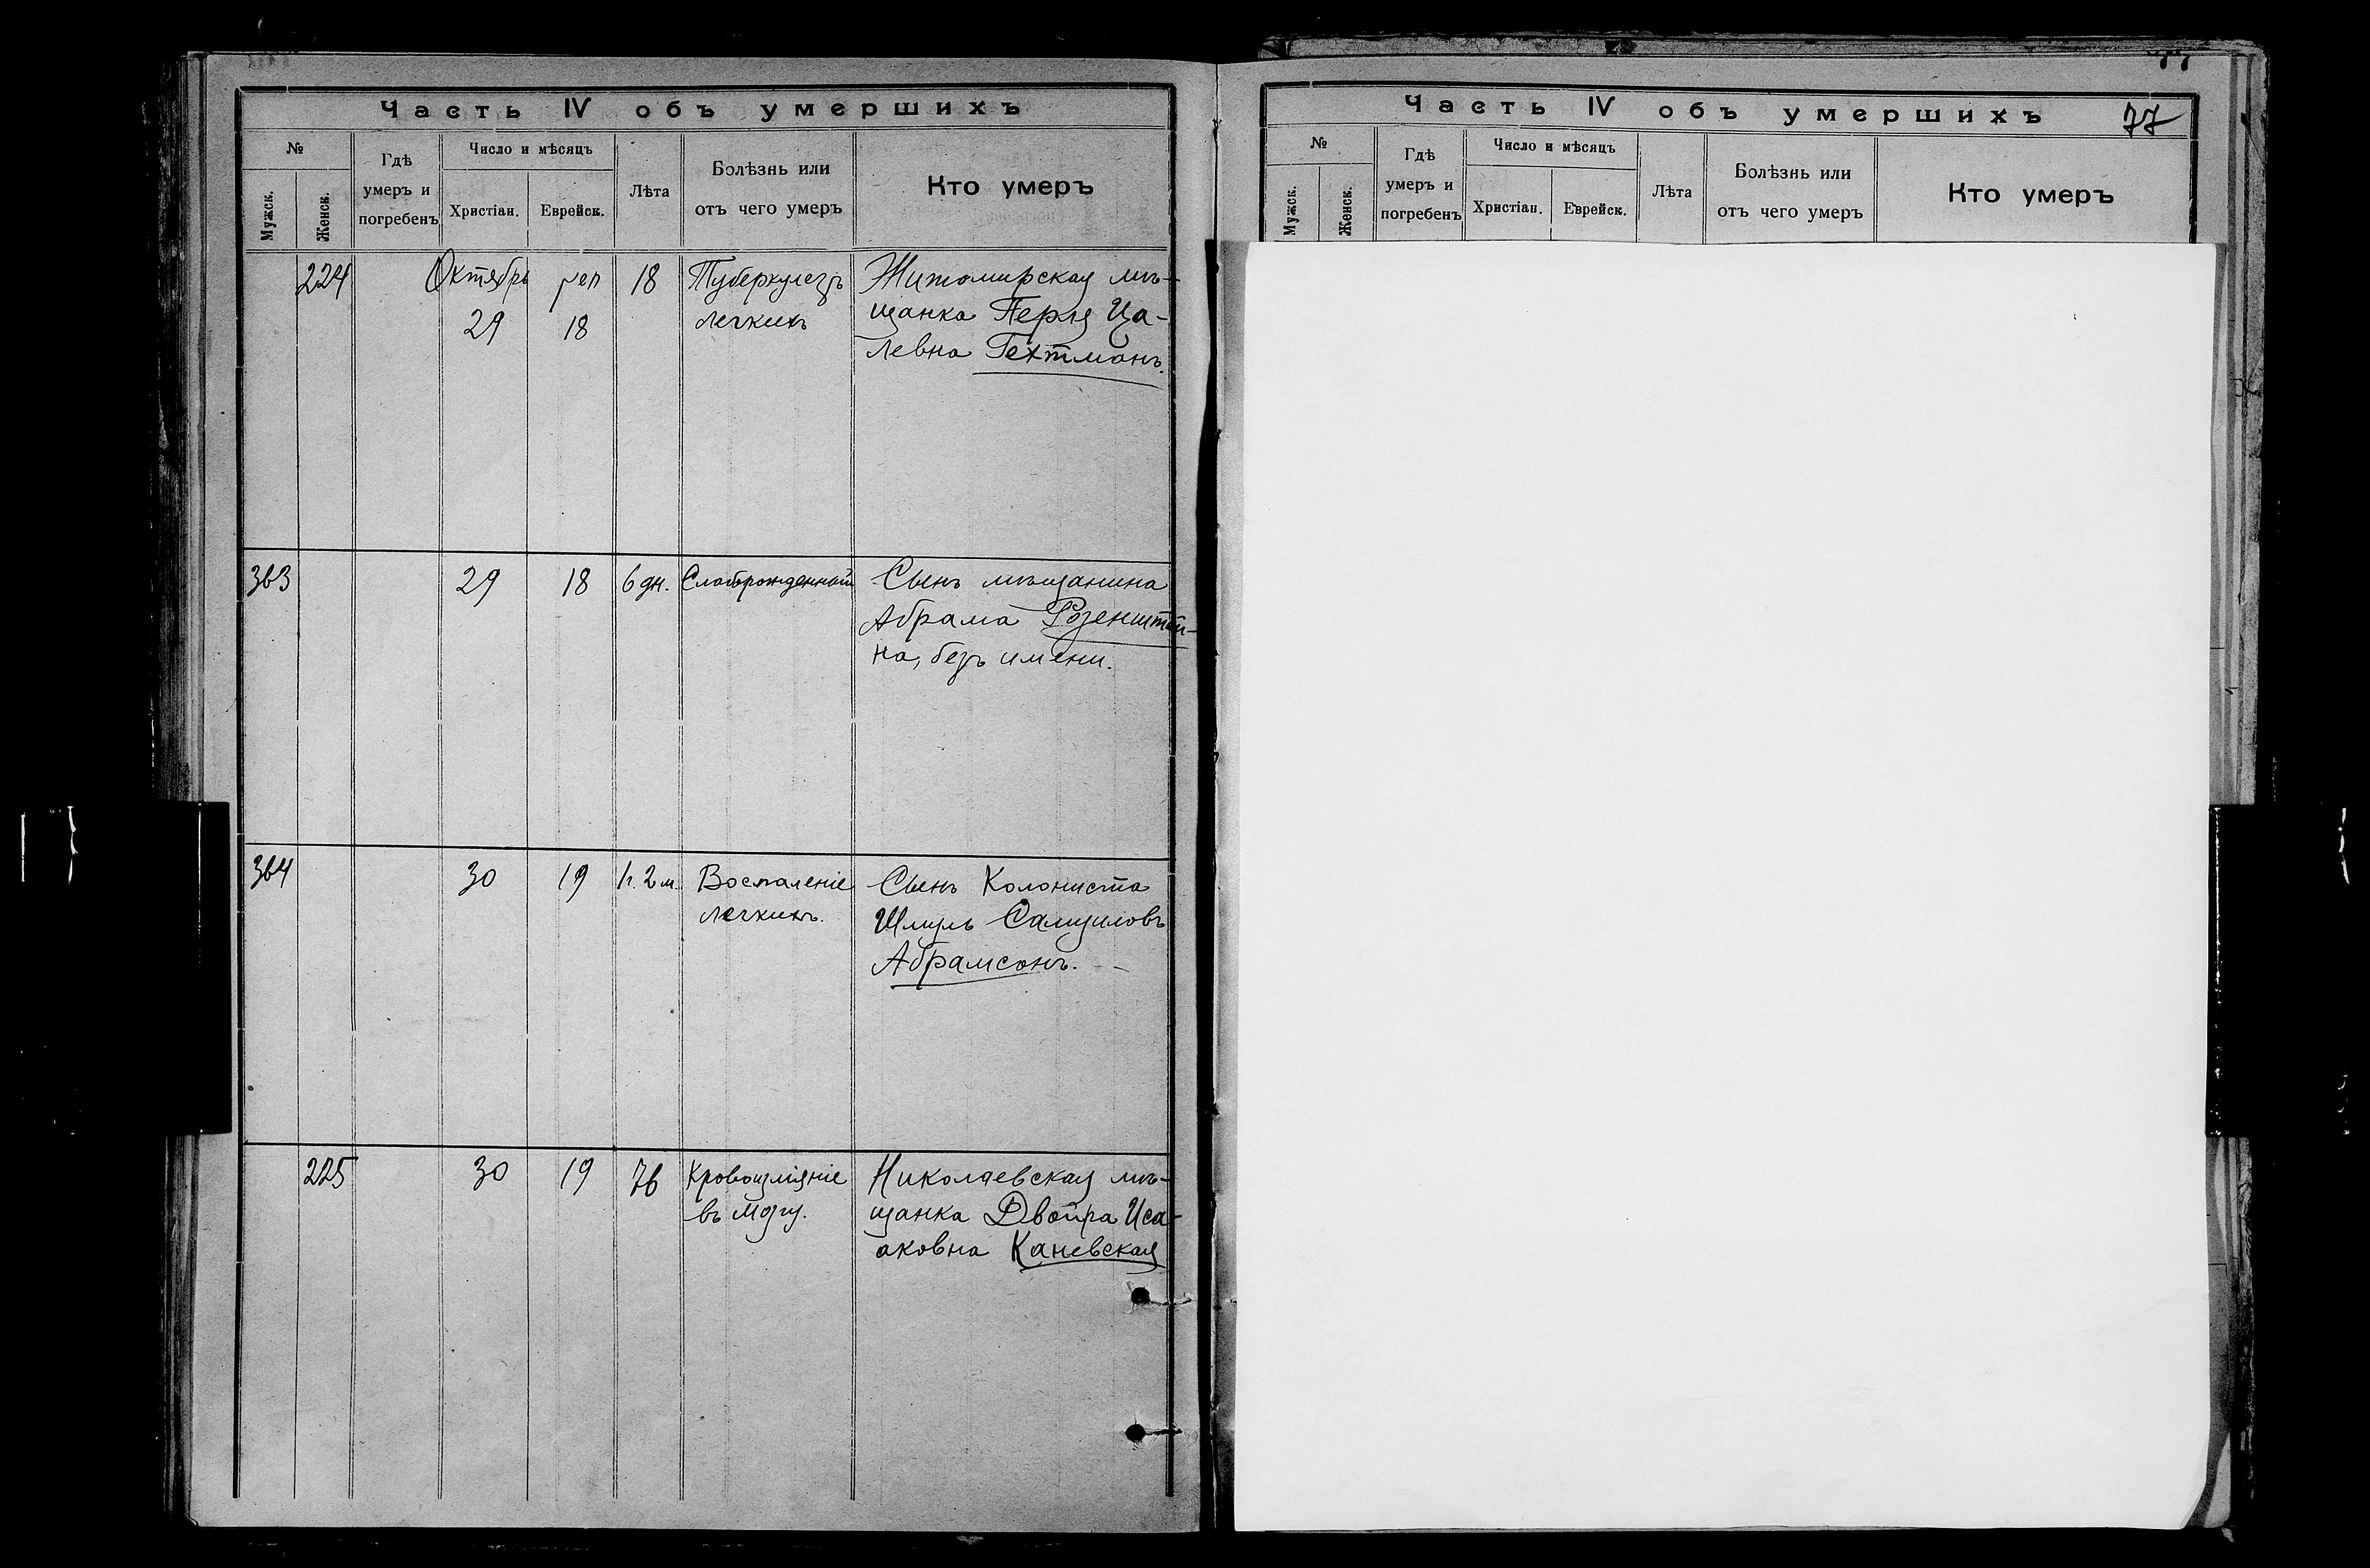 Часть IV объ умершихъ
№
Мужск.
Женск.
Гдѣ
умеръ и
погребенъ
Число и мѣсяцъ
Христіан.
Еврейск.
Лѣта
Болѣзнь или
отъ чего умеръ
Кто умеръ
224
Октябрь
29
18
18
Туберкулезъ
легкихъ
Житомирская мѣ-
щанка Перля Ца-
левна Гехтманъ.
363
29
18
6 дн.
Слаборожденный
Сынъ мѣщанина
Абрама Розенштей-
на, безъ имени.
364
30
19
1 г. 2 м.
Воспаленіе
легкихъ.
Сынъ Колониста
Шмуль Самуиловъ
Абрамсонъ.
225
30
19
76
Кровоизліяніе
въ мозгу.
Николаевская мѣ-
щанка Двойра Иса-
аковна Каневская
Часть IV объ умершихъ
77
№
Мужск.
Женск.
Гдѣ
умеръ и
погребенъ
Число и мѣсяцъ
Христіан.
Еврейск.
Лѣта
Болѣзнь или
отъ чего умеръ
Кто умеръ